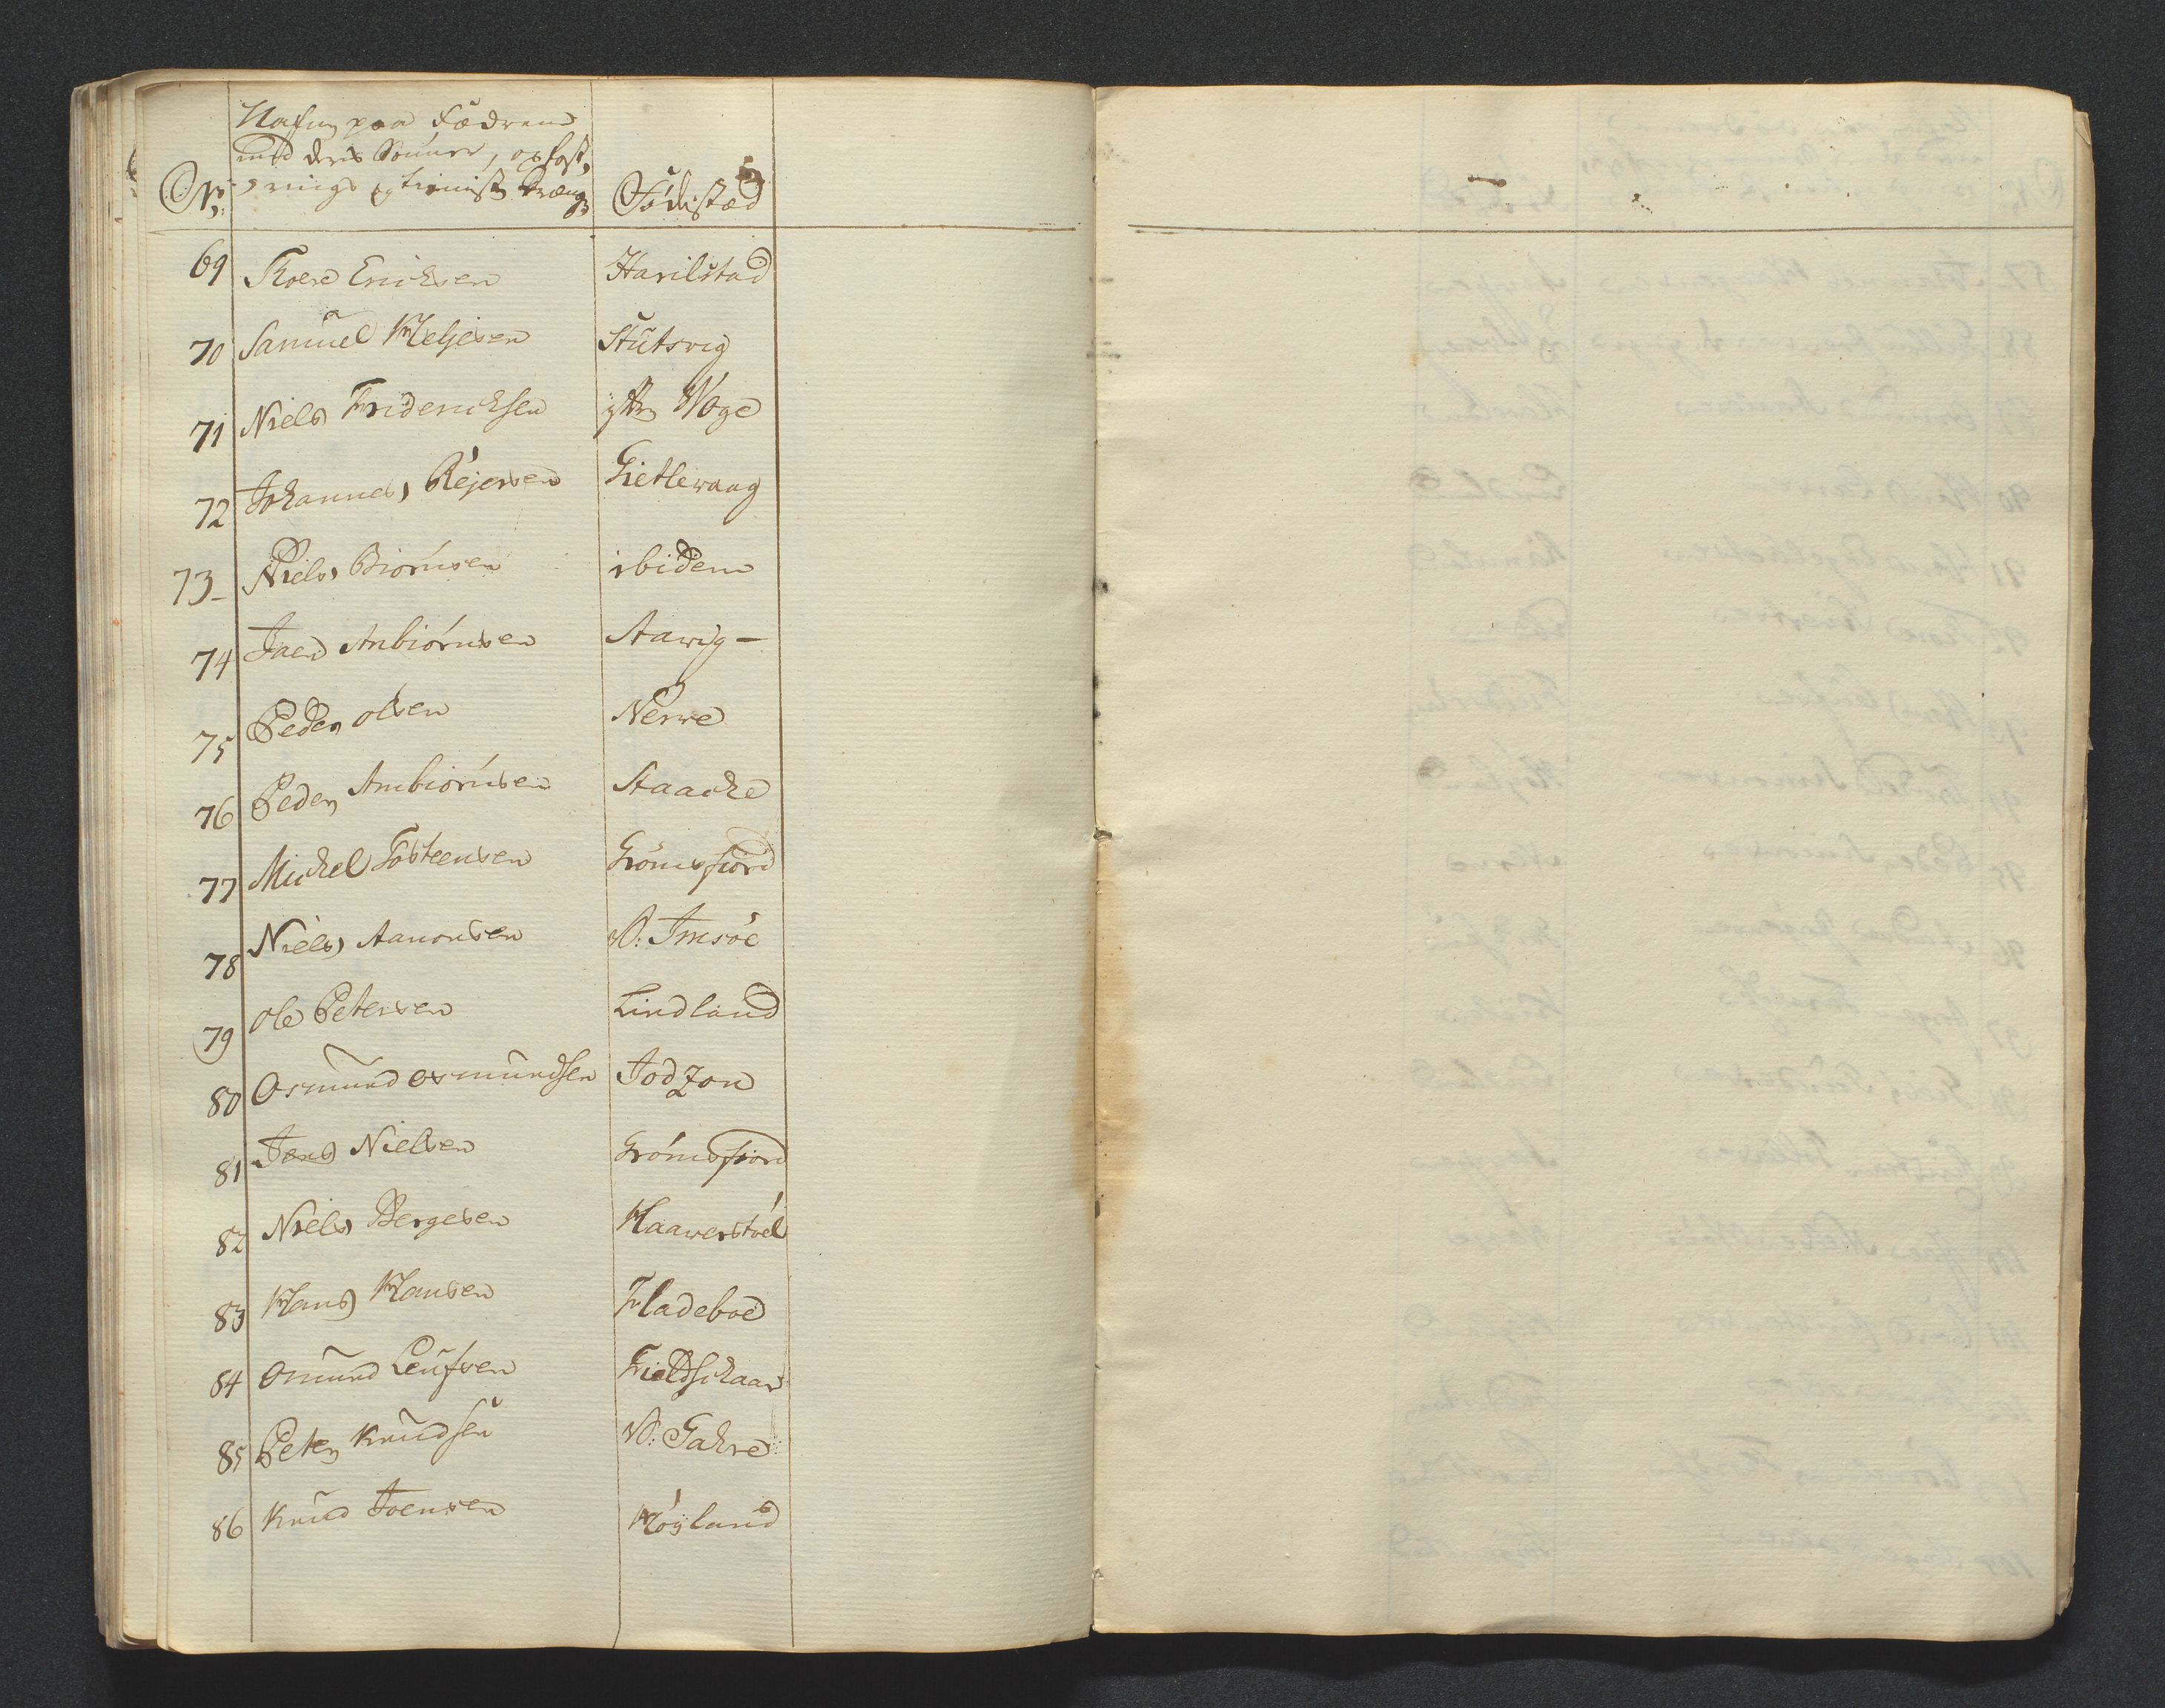 Nafn paa Fædrene
med deris Sönner, opfost,
No: rings og tienist Drænge Födested
69 Thore Ericksen Harilstad
70 Samuel Heljesen Stutsvig
71 Niels Fridericksen ytter Woge
72 Johannes Rejersen Gietlewaag
73 Niels Biörnsen ibidem
74 Joen Anbiörnsen Aawig
75 Peder olsen Nerre
76 Peder Ambiörnsen Staacke
77 Michel Tosteensen Grömsfiord
78 Niels Aanonsen N: Imsöe
79 Ole Petersen Lindland
80 Osmund osmundsen
81 Jens Nielsen Grömsfiord
82 Niels Bergesen Haawerstoel
83 Hans Hansen Fladeboe
84 Omund Leufsen Fieldschaar
85 Peter Knudsen N:
86 Knud Joensen Höyland